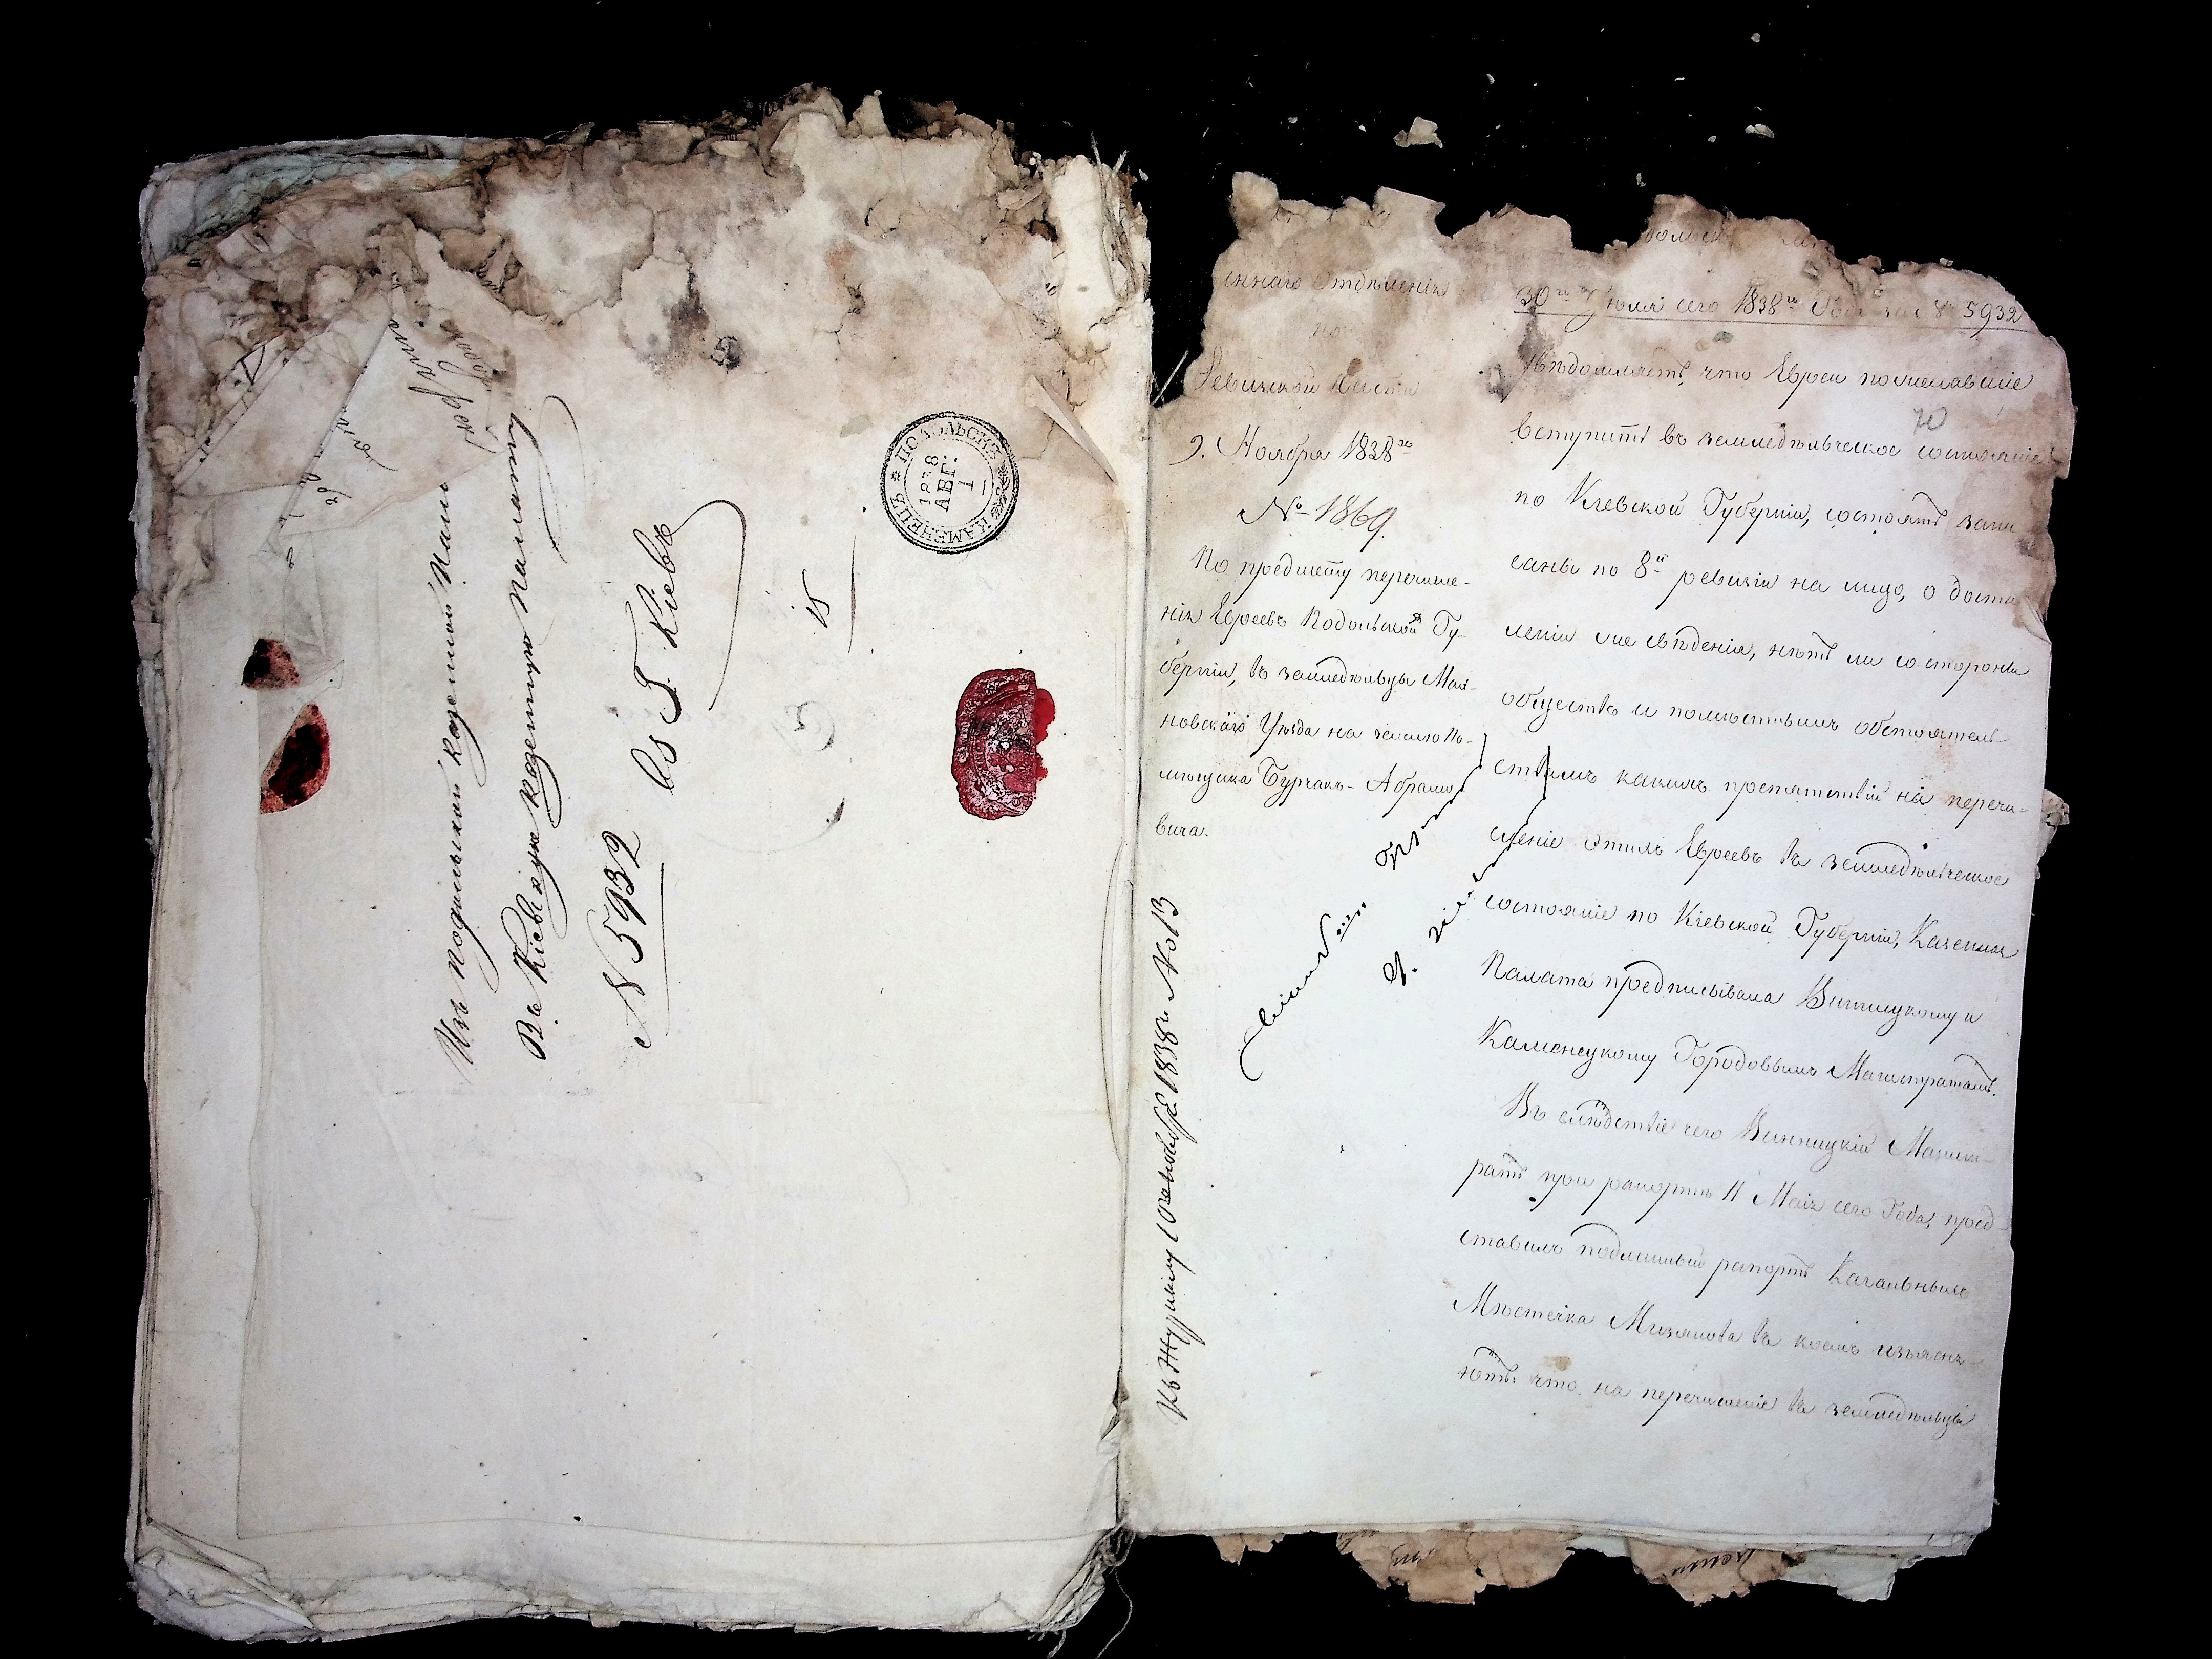 Изъ Подольской казенной Пала
Въ Кіевскую казенную Палату
N 5932 въ Г. Кіевъ
15
КАМЕНЕЦЪ ПОДОЛЬСКЪ
1838
АВГ.
1
Отдѣленія
по
9. Ноября 1838го
№ 1869.
По предмету перечисле-
нія Евреевъ Подольской Гу-
берніи, въ земледѣльцы Мах-
новскаго Уѣзда на землю По-
мѣщика Бурчакъ-Абрамо-
вича.
Къ Журналу 10 Ноября 1838го №13
30го Іюля сего 1838го Года за № 5932
увѣдомляетъ, что Евреи пожелавшіе
70
вступить въ земледѣльческое состояніе
по Кіевской Губерніи, состоятъ запи
саны по 8й ревизіи на лицо, о доста
вленіи же свѣденія, нѣтъ ли со стороны
обществъ и помѣстнымъ обстоятель-
ствамъ какихъ препятствій на перечи-
сленіе этихъ Евреевъ въ земледѣльческое
состояніе по Кіевской Губерніи, Казенная
Палата предписывала Винницкому и
Каменецкому Городовымъ Магистратамъ.
Въ слѣдствіе чего Винницкій Магист-
ратъ при рапортѣ 11 Маія сего Года, пред-
ставилъ подлинный рапортъ Кагальныхъ
Мѣстечка Мизякова въ коемъ изъясня-
ютъ: что, на перечисленіе въ земледѣльцы